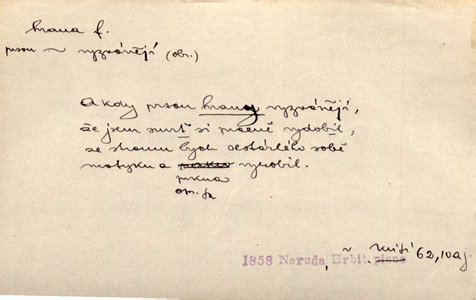 hrana f.
prsou ~ vyzvánějí (obr.)
A kdy prsou hrany vyzvánějí,
že jsem smrť si pracně vydobil,
ze stromu bych sestárlého sobě
motyku a vyrobil.
prkna
1858 Neruda, Hřbit. písně
Knihy 62, IV aj.